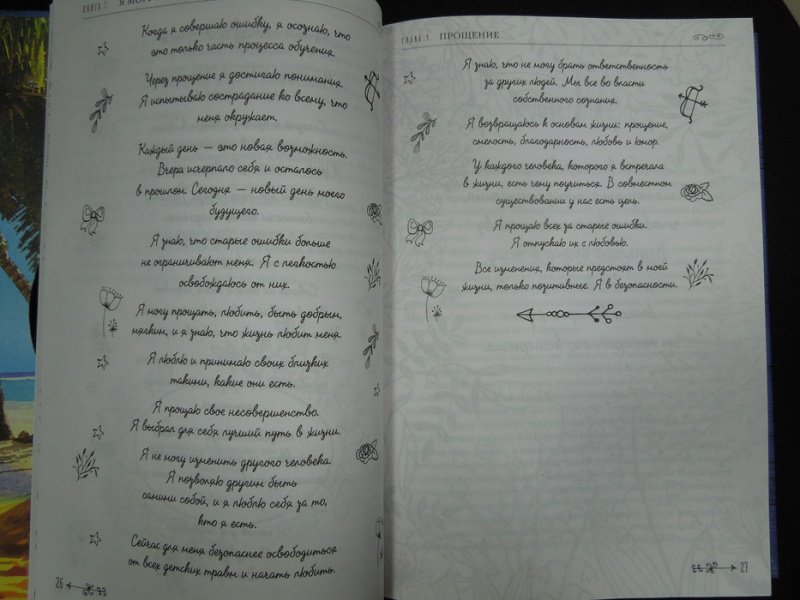 КНИГА 1. Я МОГ
Когда я совершаю ошибку, я осознаю, что
это только часть процесса обучения.
Через прощение я достигаю понимания.
Я испытываю сострадание ко всему, что
меня окружает.
Каждый день — это новая возможность.
Вчера исчерпало себя и осталось
в прошлом. Сегодня — новый день моего
будущего.
Я знаю, что старые ошибки больше
не ограничивают меня. Я с легкостью
освобождаюсь от них.
Я могу прощать, любить, быть добрым,
мягким, и я знаю, что жизнь любит меня.
Я люблю и принимаю своих близких
такими, какие они есть.
Я прощаю свое несовершенство.
Я выбрал для себя лучший путь в жизни.
Я не могу изменить другого человека.
Я позволяю другим быть
самими собой, и я люблю себя за то,
кто я есть.
Сейчас для меня безопаснее освободиться
от всех детских травм и начать любить.
26
ГЛАВА 3. ПРОЩЕНИЕ
Я знаю, что не могу брать ответственность
за других людей. Мы все во власти
собственного сознания.
Я возвращаюсь к основам жизни: прощение,
смелость, благодарность, любовь и юмор.
У каждого человека, которого я встречала
в жизни, есть чему поучиться. В совместном
существовании у нас есть цель.
Я прощаю всех за старые ошибки.
Я отпускаю их с любовью.
Все изменения, которые предстоят в моей
жизни, только позитивные. Я в безопасности.
27